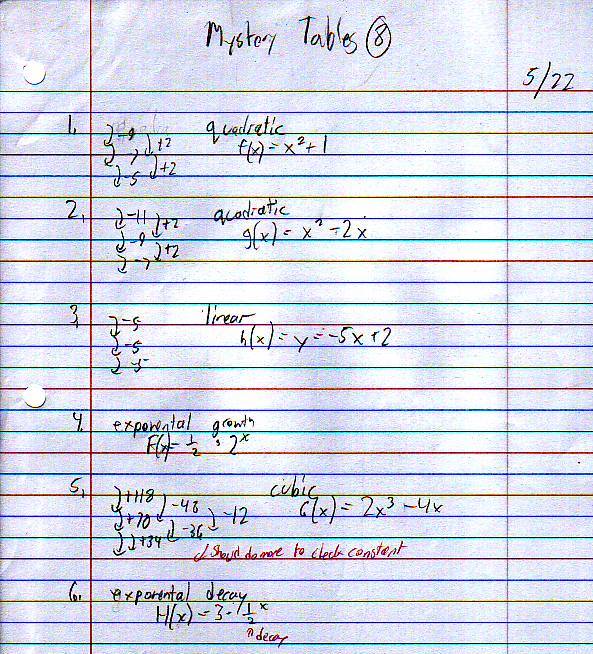 Mystery Tables 8
5/22
1. -9 quadratic
-7 +2 f(x) = x² + 1
-5 +2
2. -11 +2 quadratic
-9 +2 g(x) = x² - 2x
-7
3. -5 linear
-5 h(x) = y = -5x + 2
-5
4. exponental growth
F(x) = 1/2 · 2^x
5. +118 -48 cubic
+70 -36 -12 G(x) = 2x³ - 4x
+34
should do more to check constant
6. exponental decay
H(x) = 3 · 1/2^x
decay